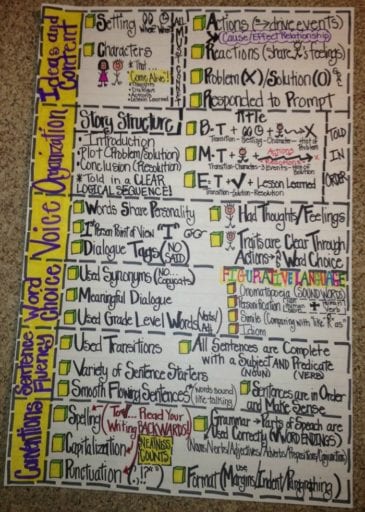 Ideas and Content
Setting
Where
When
ALL MUST CONNECT
Characters
* That...
Come Alive!
Thoughts
Dialogue
Actions
Lesson Learned
Actions (→ drive events)
Cause/Effect Relationship
Reactions (share X's feelings)
Problem (X) / Solution (O)
Responded to Prompt
Organization
Story Structure
• Introduction
• Plot (Problem/Solution)
• Conclusion (Resolution)
* Told in a CLEAR
LOGICAL SEQUENCE!
TITLE
B-T +
Transition - Setting - Character
M-T +
Actions
Reactions
Transition - Character - 3 Events
E-T +
+ Lesson Learned
Transition - Solution - Resolution
TOLD IN ORDER
Voice
Words Share Personality
1st Person Point of View "I"
Dialogue Tags (NO SAID)
Had Thoughts/Feelings
Traits are Clear Through
Actions → & Word Choice
Word Choice
Used Synonyms (NO... Copycats)
Meaningful Dialogue
Used Grade Level Words
FIGURATIVE LANGUAGE
Onomatopoeia (SOUND WORDS)
Personification
Simile (Comparing with "like" & "as")
Idiom
Sentence Fluency
Used Transitions
Variety of Sentence Starters
Smooth Flowing Sentences (words sound like talking)
All Sentences are Complete
with a Subject AND Predicate
(NOUN) (VERB)
Sentences are in Order
and Make Sense
Conventions
Spelling
(Turn... Read Your
Writing BACKWARDS!)
Capitalization
NEATNESS COUNTS!
Punctuation (. , ! ? " ")
Grammar → Parts of Speech are
Used Correctly (& WORD ENDINGS)
(Nouns/Verbs/Adjectives/Adverbs/Prepositions/Conjunctions)
Format (use Margins/Indent/Paragraphing)